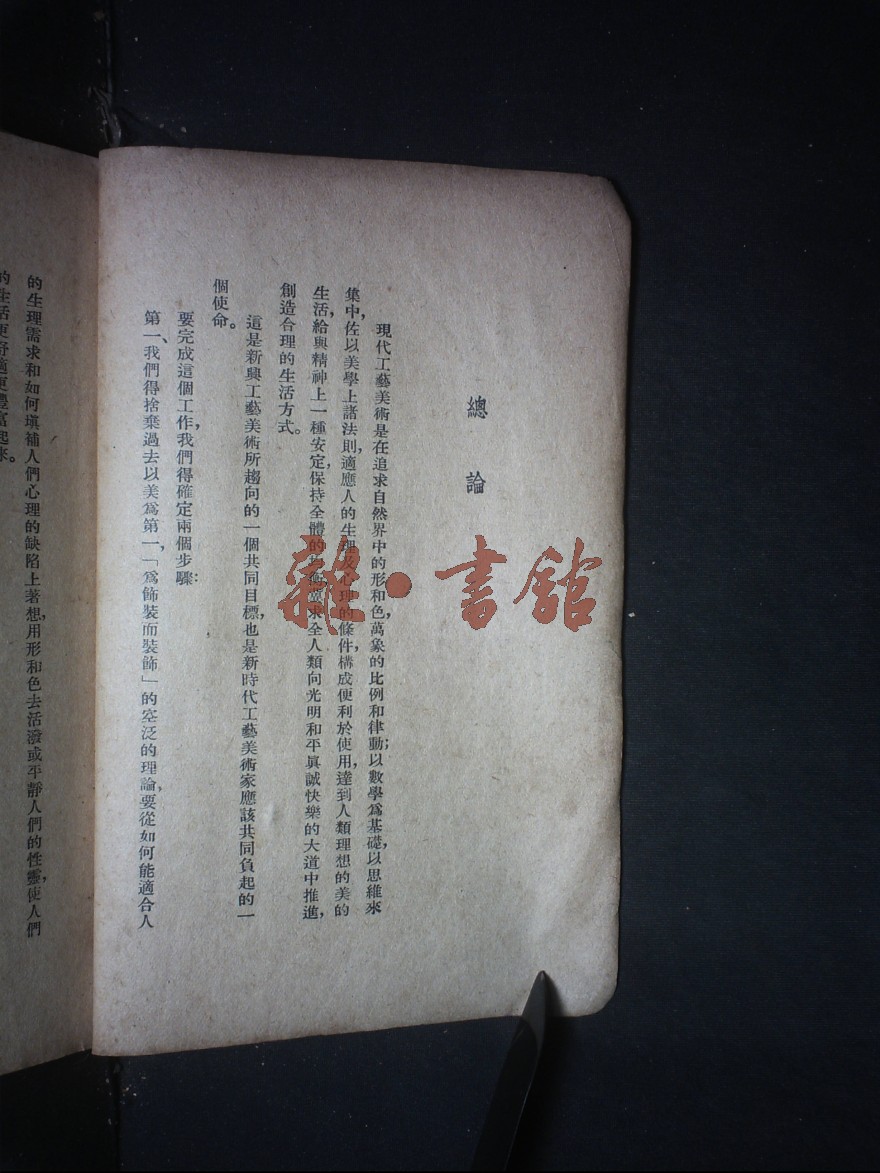 總論
現代工藝美術是在追求自然界中的形和色，萬象的比例和律動；以數學爲基礎，以思維來
集中，佐以美學上諸法則，適應人的生理及心理的條件，構成便利於使用，達到人類理想的美的
生活，給與精神上一種安定，保持全體的均衡，要求全人類向光明和平眞誠快樂的大道中推進，
創造合理的生活方式。
這是新興工藝美術所趨向的一個共同目標，也是新時代工藝美術家應該共同負起的一
個使命。
要完成這個工作，我們得確定兩個步驟：
第一、我們得捨棄過去以美爲第一，「爲飾裝而裝飾」的空泛的理論，要從如何能適合人
的生理需求和如何塡補人們心理的缺陷上著想，用形和色去活潑或平靜人們的性靈，使人們
的生活更舒適更豐富起來。
雜·書館